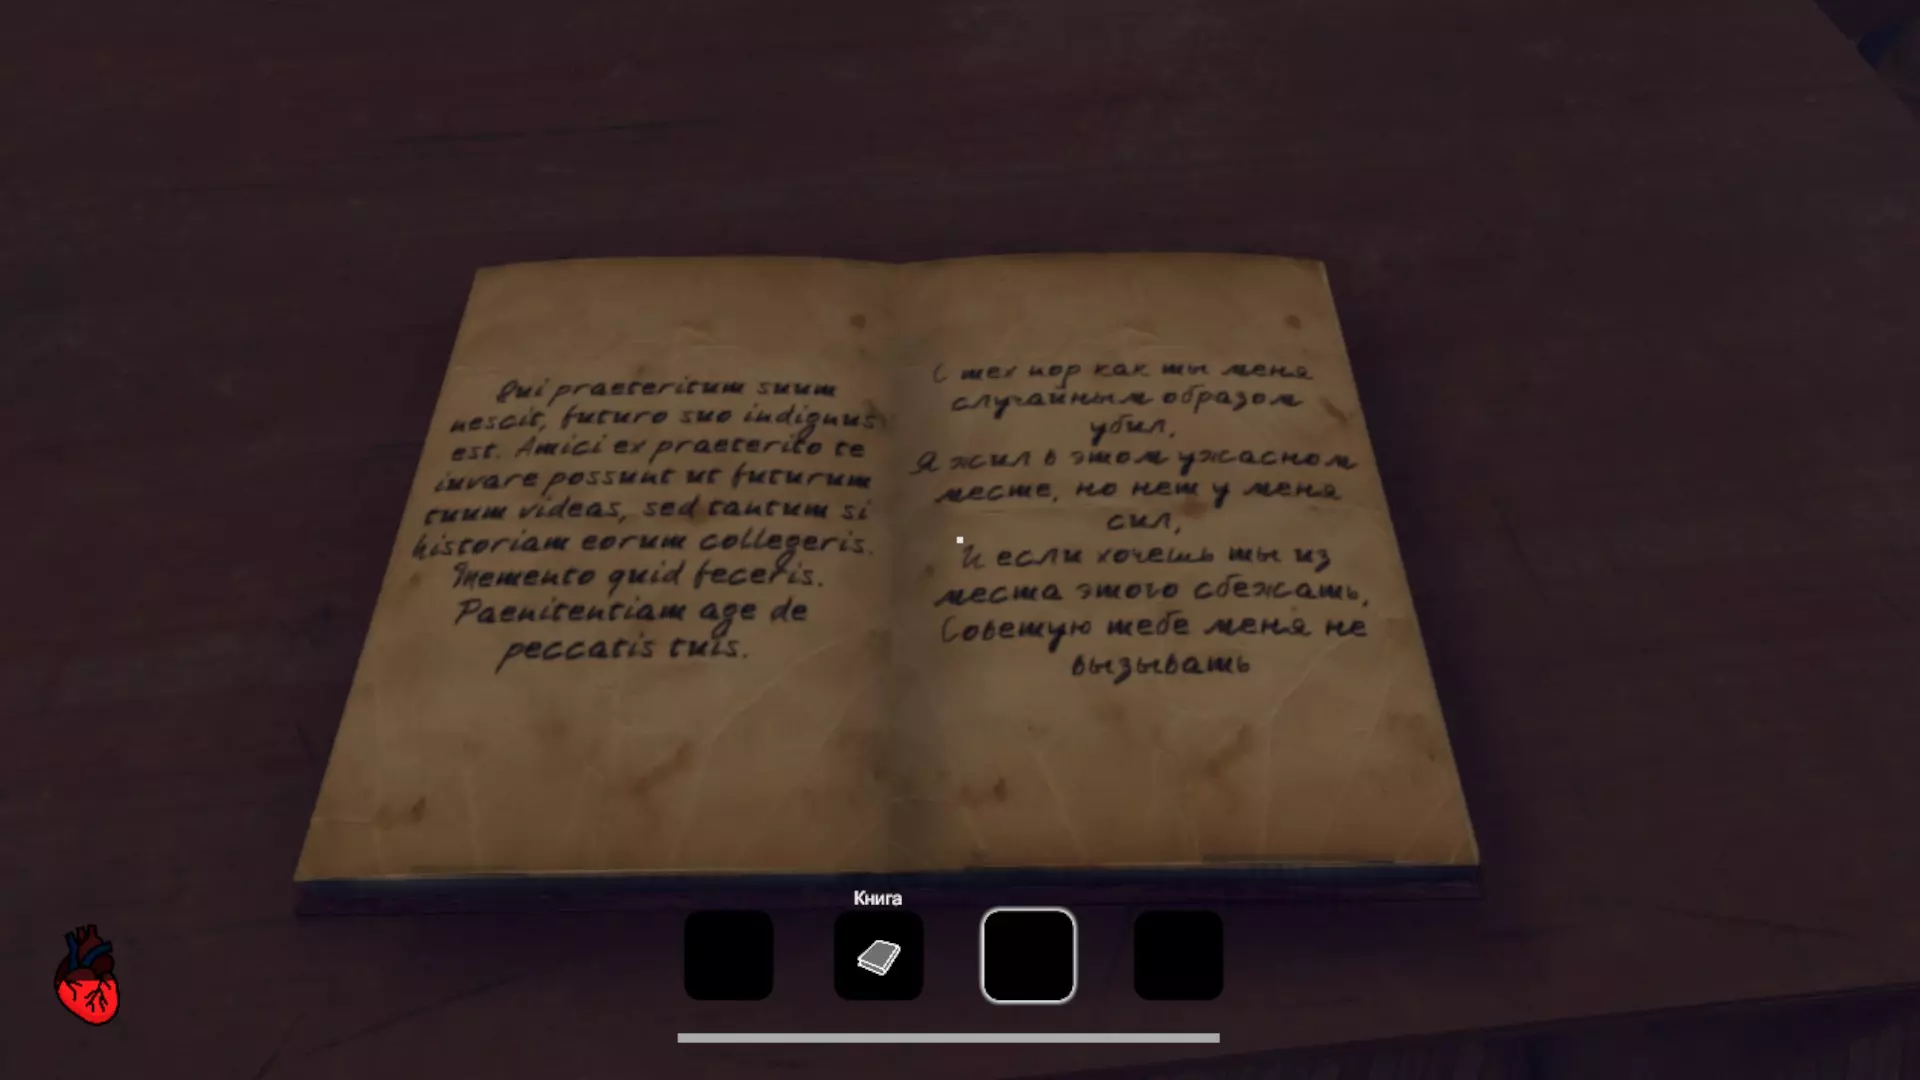 Qui praeteritum suum
nescit, futuro suo indignus
est. Amici ex praeterito te
iuvare possunt ut futurum
tuum videas, sed tantum si
historiam eorum collegeris.
Memento quid feceris.
Paenitentiam age de
peccatis tuis.
С тех пор как ты меня
случайным образом
убил,
Я жил в этом ужасном
месте, но нет у меня
сил,
И если хочешь ты из
места этого сбежать,
Советую тебе меня не
вызывать
Книга